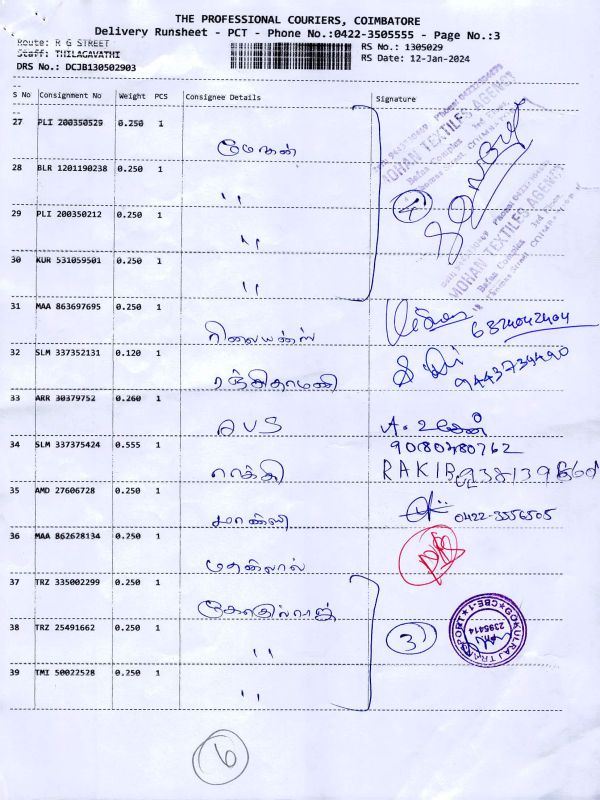 THE PROFESSIONAL COURIERS, COIMBATORE
Delivery Runsheet - PCT - Phone No.:0422-3505555 - Page No.:3
Route: R G STREET
RS No.: 1305029
Staff: THILAGAVATHI
RS Date: 12-Jan-2024
DRS No.: DCJB130502903
S No Consignment No Weight PCS Consignee Details Signature
27 PLI 200350529 0.250 1
மோகன்
28 BLR 1201190238 0.250 1
"
29 PLI 200350212 0.250 1
"
4
30 KUR 531059501 0.250 1
"
MOHAN TEXTILES AGENCY
MOHAN TEXTILES AGENCY
31 MAA 863697695 0.250 1
ரிலையன்ஸ்
32 SLM 337352131 0.120 1
ரஞ்சிதாமணி
33 ARR 30379752 0.260 1
AVS
34 SLM 337375424 0.555 1
9080480762
ராக்கி RAKIB
35 AMD 27606728 0.250 1
0422-3556505
36 MAA 862628134 0.250 1
மதன்லால்
37 TRZ 335002299 0.250 1
கோகுல்ராஜ்
38 TRZ 25491662 0.250 1
" 3
GOKULRAJ TRANSPORT * CBE-1 *
2395414
39 TMI 50022528 0.250 1
"
6